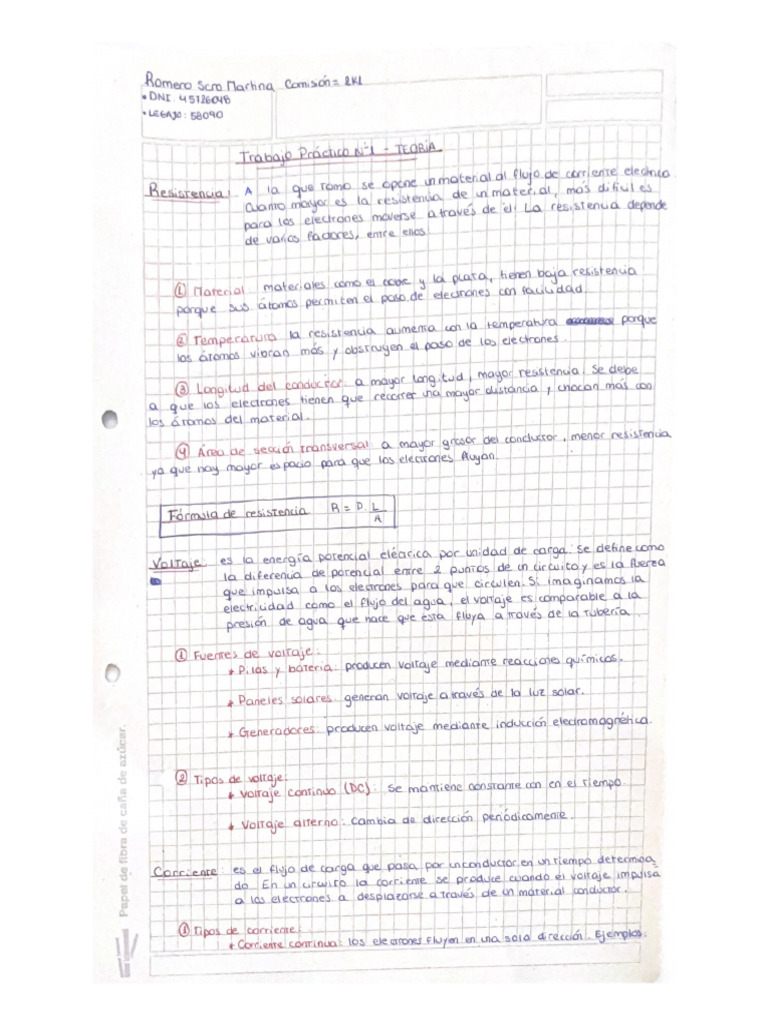 Romero Scro Martina Comisión = 2K1
• DNI: 45126048
• LEGAJO: 58090
Trabajo Práctico N°1 - TEORÍA
Resistencia: A la que romo se opone un material al flujo de corriente electrica
Cuanto mayor es la resistencia de un material, más dificil es
para los electrones moverse a través de él. La resistencia depende
de varios factores, entre ellos
① Material: materiales como el cobre y la plata, tienen baja resistencia
porque sus átomos permiten el paso de electrones con facilidad.
② Temperatura la resistencia aumenta con la temperatura porque
los átomos vibran más y obstruyen el paso de los electrones.
③ Longitud del conductor: a mayor longitud, mayor resistencia. Se debe
a que los electrones tienen que recorrer una mayor distancia y chocan más con
los átomos del material.
④ Área de sección transversal a mayor grosor del conductor, menor resistencia
ya que hay mayor espacio para que los electrones fluyan.
Fórmula de resistencia R = ρ. L/A
Voltaje: es la energía potencial eléctrica por unidad de carga. Se define como
la diferencia de potencial entre 2 puntos de un circuito y es la fuerza
que impulsa a los electrones para que circulen. Si imaginamos la
electricidad como el flujo del agua, el voltaje es comparable a la
presión de agua que hace que esta fluya a través de la tubería.
① Fuentes de voltaje:
* Pilas y bateria: producen voltaje mediante reacciones químicas.
* Paneles solares: generan voltaje a través de la luz solar.
* Generadores: producen voltaje mediante inducción electromagnética.
② Tipos de voltaje:
* Voltaje continuo (DC): Se mantiene constante con en el tiempo.
* Voltaje alterno: Cambia de dirección periódicamente.
Corriente: es el flujo de carga que pasa por un conductor en un tiempo determina
do. En un circuito la corriente se produce cuando el voltaje impulsa
a los electrones a desplazarse a través de un material conductor.
① Tipos de corriente:
* Corriente continua: los electrones fluyen en una sola dirección. Ejemplos:
Papel de fibra de caña de azúcar.